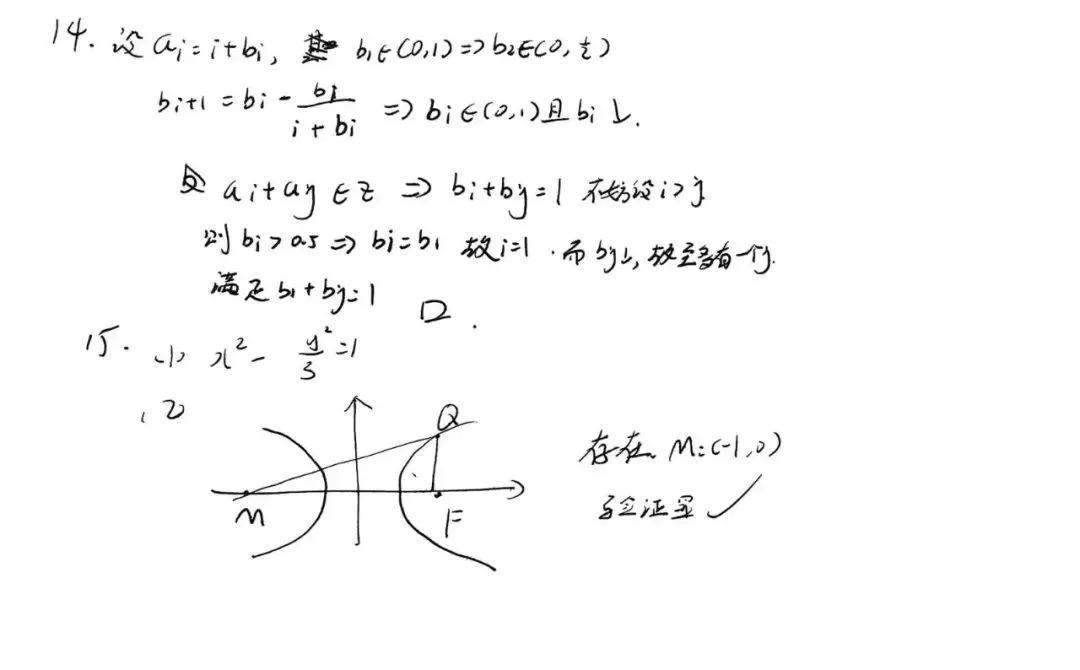 14. 设 aᵢ = i + bᵢ, b₁∈(0,1) ⇒ b₂∈(0, ½)
bᵢ₊₁ = bᵢ - bᵢ/(i + bᵢ) ⇒ bᵢ∈(0,1)且 bᵢ ↓.
aᵢ + aⱼ ∈ Z ⇒ bᵢ + bⱼ = 1 不妨设 i > j
则 bᵢ > 0.5 ⇒ bᵢ = b₁ 故 i=1. 而 bⱼ↓, 故至多有一个j.
满足 b₁ + bⱼ = 1 □.
15. (1) x² - y²/3 = 1
(2)
Q
M F
存在 M:(-1,0)
验证 ✓